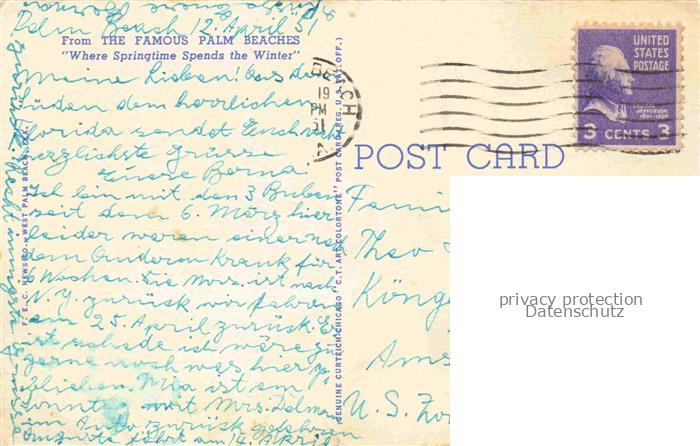 Palm Beach 12. April 51
From THE FAMOUS PALM BEACHES
"Where Springtime Spends the Winter"
Meine Lieben! Aus dem
Süden dem herrlichen
Florida sendet Euch
herzlichste Grüsse
Euere Berna.
Ich bin mit den 3 Buben
seit dem 6. März hier
leider waren einer nach
dem Anderen Krank für
6 Wochen. Die Mrs. ist nach
N.Y. zurück wir fahren
am 25. April zurück. Es
ist schade ich wäre zu
gerne noch was hier ge-
blieben. Mia ist am
Sonntag mit Mrs.
im Auto zurück gefahren
fährt am 14. April
F. E. C. NEWS CO., WEST PALM BEACH, FLA.
GENUINE CURTEICH-CHICAGO "C.T. ART-COLORTONE" POST CARD (REG. U.S. PAT. OFF.)
19
PM
51
UNITED
STATES
POSTAGE
JEFFERSON
3 CENTS 3
POST CARD
Fami
Theo
Köng
Ams
U.S. Zo
privacy protection
Datenschutz